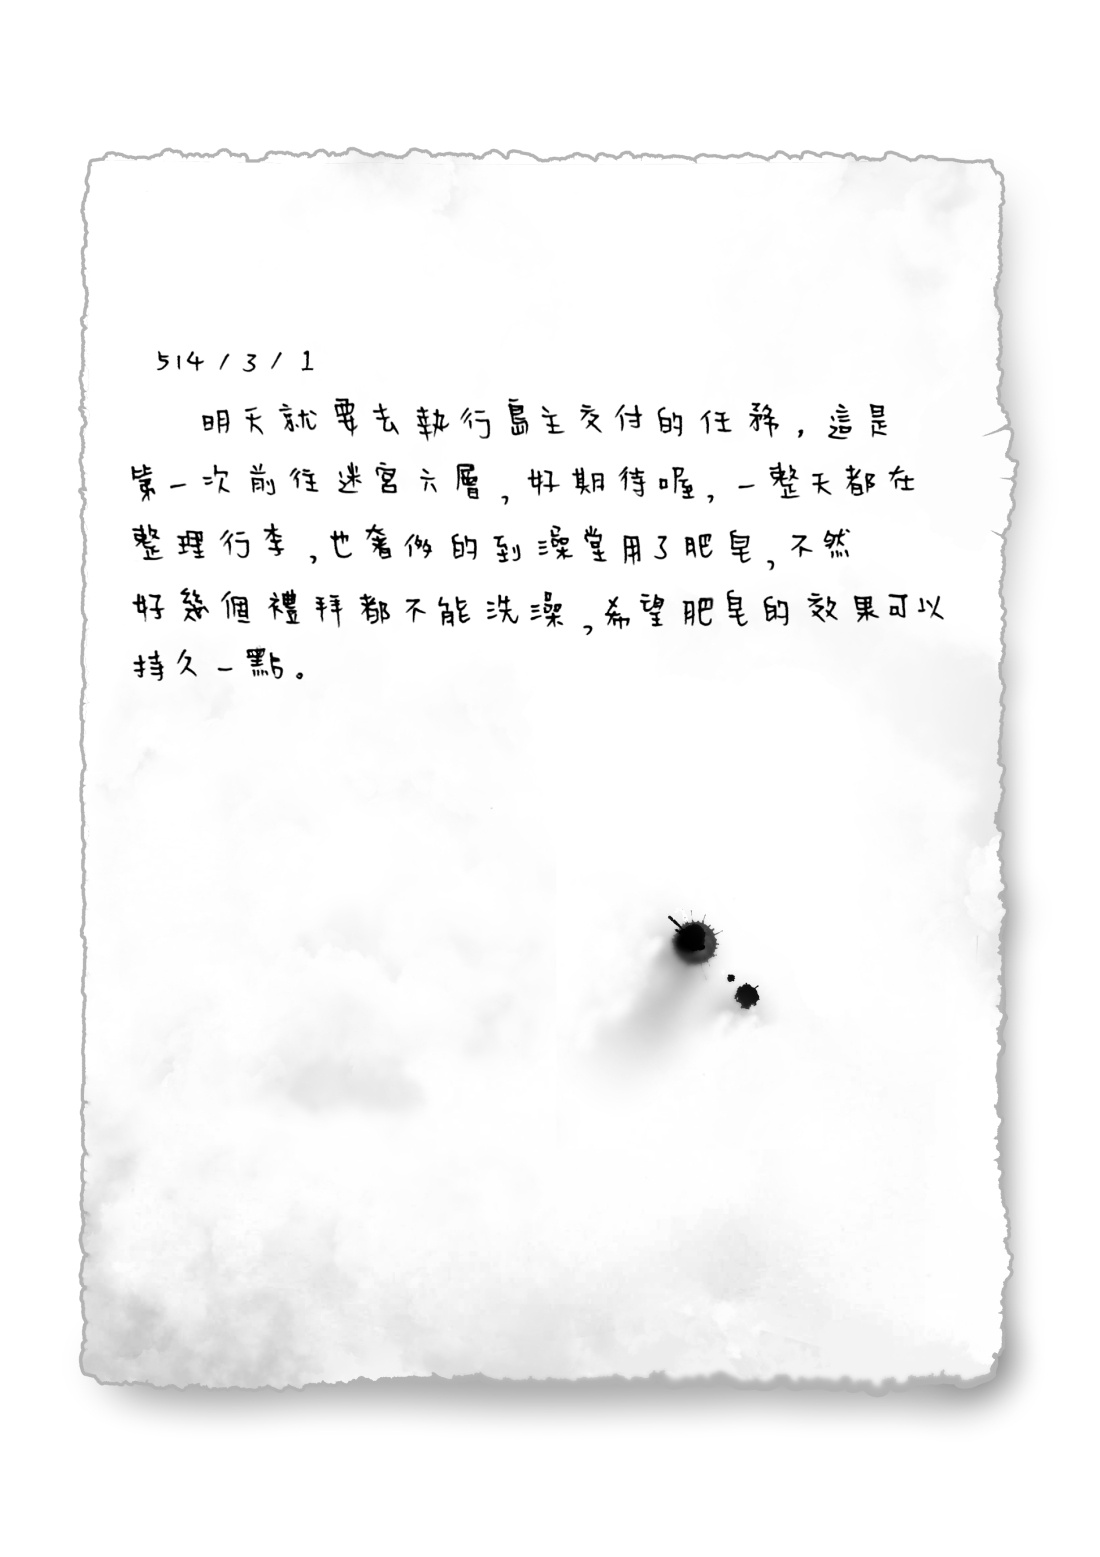 514/3/1
明天就要去執行島主交付的任務,這是
第一次前往迷宮六層,好期待喔,一整天都在
整理行李,也奢侈的到澡堂用了肥皂,不然
好幾個禮拜都不能洗澡,希望肥皂的效果可以
持久一點。